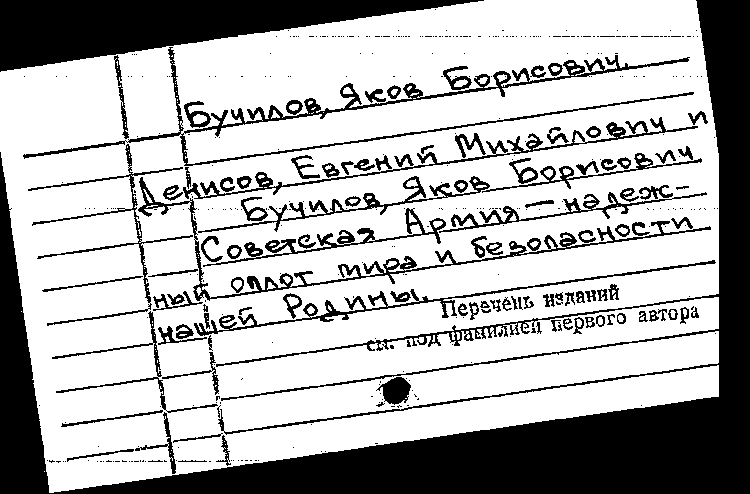 Бучилов, Яков Борисович.
Денисов, Евгений Михайлович и
Бучилов, Яков Борисович.
Советская Армия — надеж-
ный оплот мира и безопасности
нашей Родины.
Перечень изданий
см. под фамилией первого автора